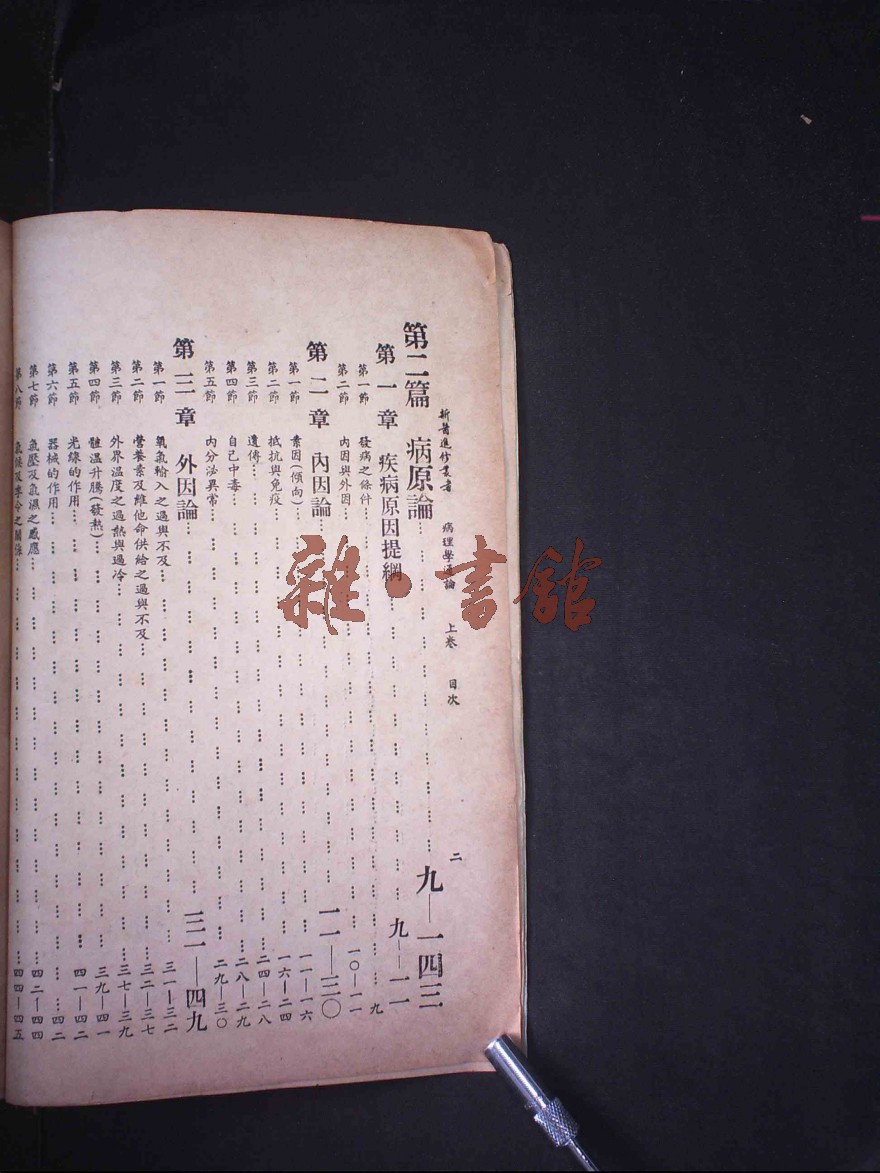 新醫進修叢書 病理學通論 上卷 目次 二
第二篇 病原論……九—一四三
第一章 疾病原因提綱……九—一一
第一節 發病之條件……九
第二節 內因與外因……一〇—一一
第二章 內因論……一一—三〇
第一節 素因(傾向)……一一—一六
第二節 抵抗與免疫……一六—二四
第三節 遺傳……二四—二八
第四節 自己中毒……二八—二九
第五節 內分泌異常……二九—三〇
第三章 外因論……三一—四九
第一節 氧氣輸入之過與不及……三一—三二
第二節 營養素及維他命供給之過與不及……三二—三七
第三節 外界溫度之過熱與過冷……三七—三九
第四節 體溫升騰(發熱)……三九—四一
第五節 光線的作用……四一—四二
第六節 器械的作用……四二
第七節 氣壓及氣濕之感應……四二—四四
第八節 氣候及季令之關係……四四—四五
雜·書館